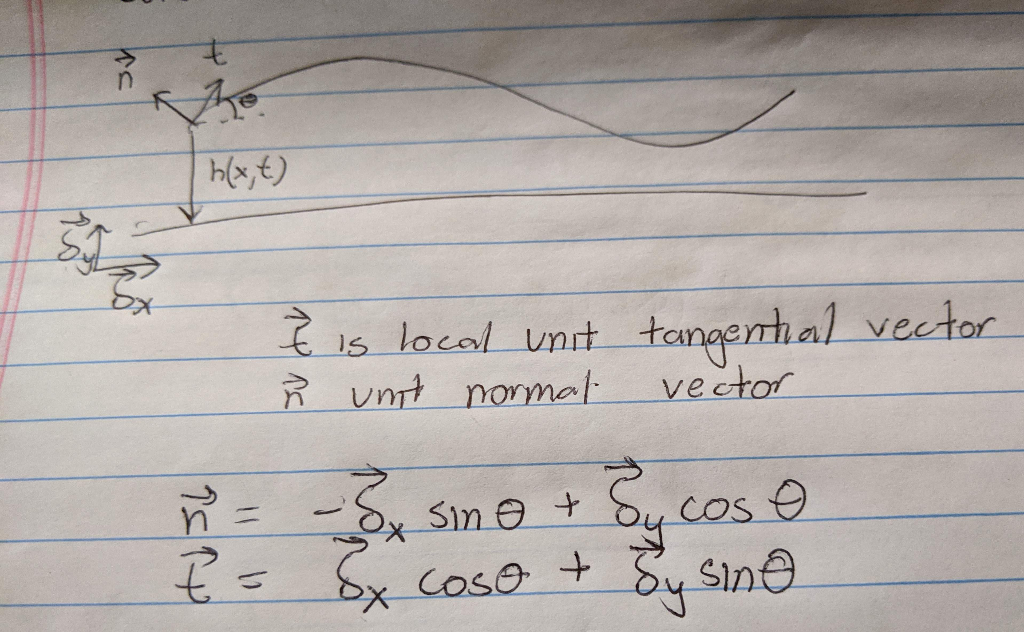 n⃗ t
θ
h(x,t)
δ⃗y
δ⃗x
t⃗ is local unit tangential vector
n⃗ unit normal vector
n⃗ = -δ⃗x sinθ + δ⃗y cosθ
t⃗ = δ⃗x cosθ + δ⃗y sinθ